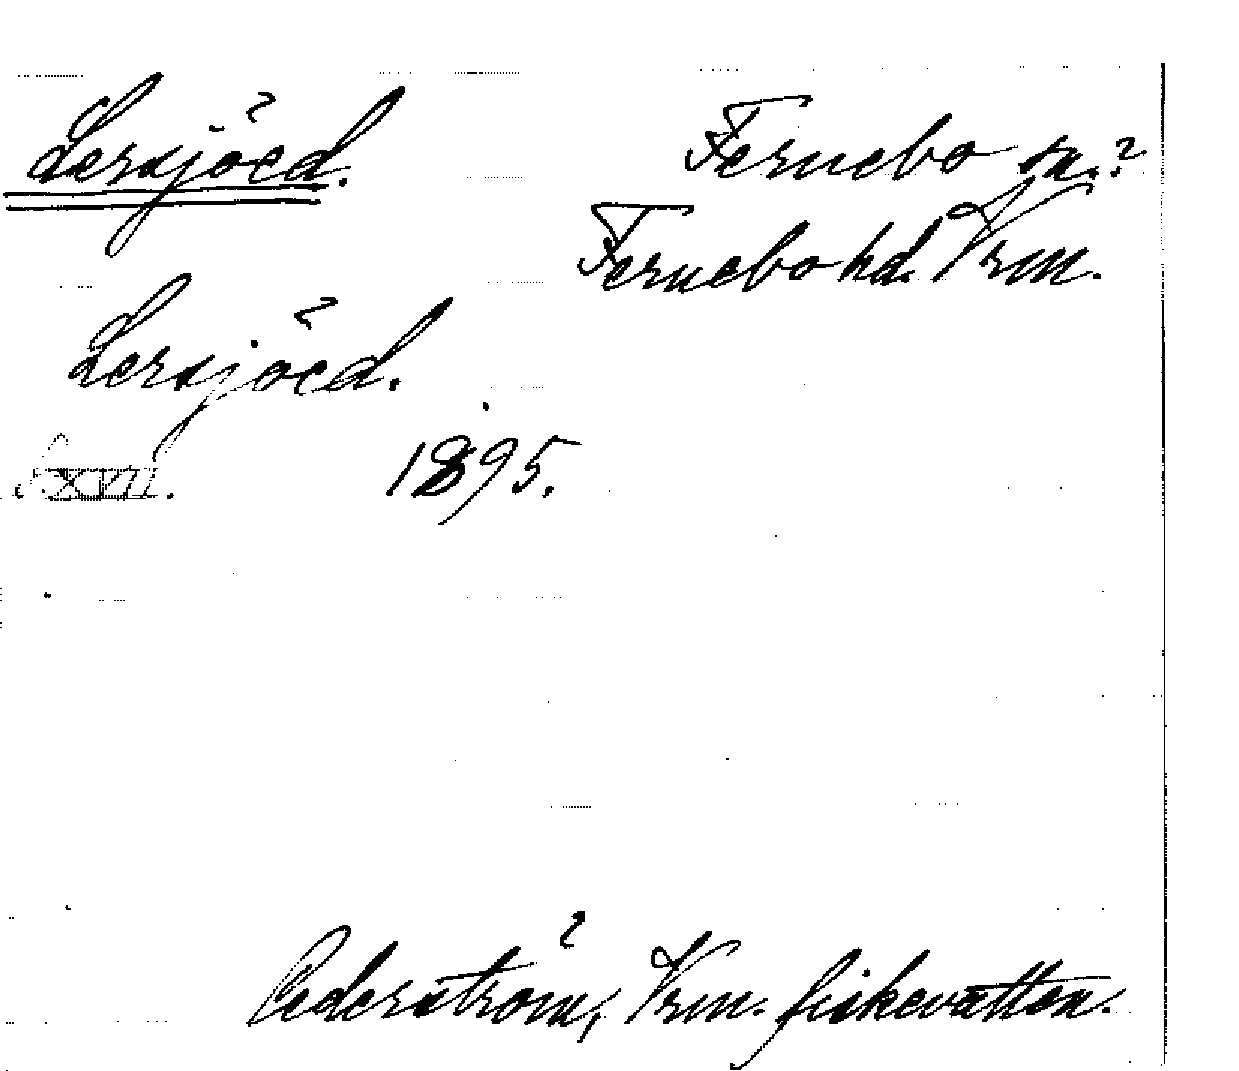 Lersjöed.
Fernebo sn.?
Fernebo hd. Vrm.
Lersjöed.
XVII. 1895.
Cederström, Vrm. fiskevatten.